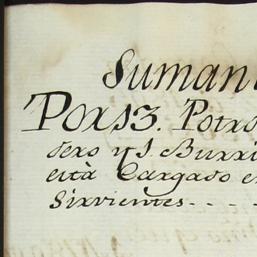 Suman
Por 13. Potro
dero y 1 Burri
està Cargado e
Sirvientes - - - -